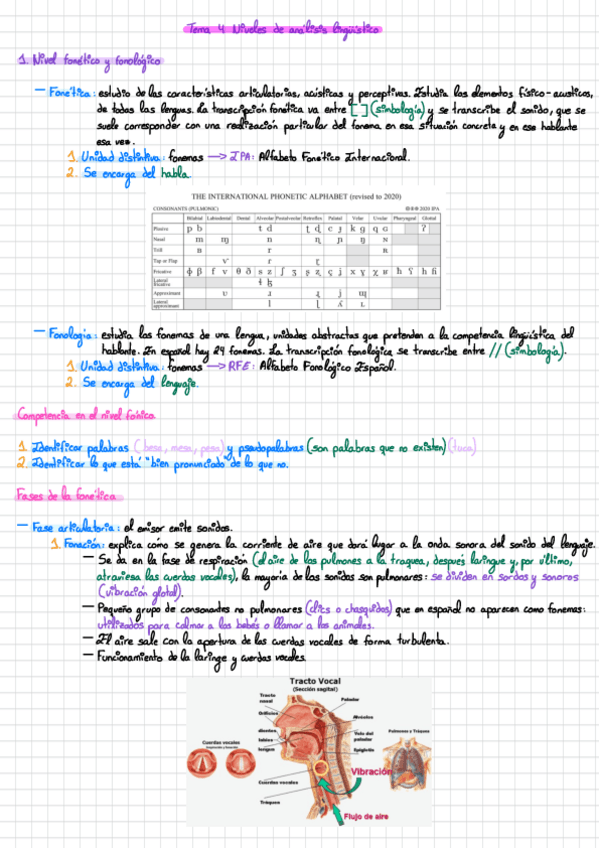 Tema 4 Niveles de análisis lingüístico
1. Nivel fonético y fonológico
— Fonética: estudio de las características articulatorias, acústicas y perceptivas. Estudia los elementos físico-acústicos,
de todas las lenguas. La transcripción fonética va entre [ ] (simbología) y se transcribe el sonido, que se
suele corresponder con una realización particular del fonema en esa situación concreta y en ese hablante
esa vez.
1. Unidad distintiva: fonemas → IPA: Alfabeto Fonético Internacional.
2. Se encarga del habla.
THE INTERNATIONAL PHONETIC ALPHABET (revised to 2020)
CONSONANTS (PULMONIC) 2020 IPA
Bilabial Labiodental Dental Alveolar Postalveolar Retroflex Palatal Velar Uvular Pharyngeal Glottal
Plosive p b t d ʈ ɖ c ɟ k ɡ q ɢ ʔ
Nasal m ɱ n ɳ ɲ ŋ ɴ
Trill ʙ r ʀ
Tap or Flap ⱱ ɾ ɽ
Fricative ɸ β f v θ ð s z ʃ ʒ ʂ ʐ ç ʝ x ɣ χ ʁ ħ ʕ h ɦ
Lateral fricative ɬ ɮ
Approximant ʋ ɹ ɻ j ɰ
Lateral approximant l ɭ ʎ ʟ
— Fonología: estudia los fonemas de una lengua, unidades abstractas que pretenden a la competencia lingüística del
hablante. En español hay 24 fonemas. La transcripción fonológica se transcribe entre // (simbología).
1. Unidad distintiva: fonemas → RFE: Alfabeto Fonológico Español.
2. Se encarga del lenguaje.
Competencia en el nivel fónico
1. Identificar palabras (besa, mesa, pesa) y pseudopalabras (son palabras que no existen) (tuca)
2. Identificar lo que está "bien pronunciado" de lo que no.
Fases de la fonética
— Fase articulatoria: el emisor emite sonidos.
1. Fonación: explica cómo se genera la corriente de aire que dará lugar a la onda sonora del sonido del lenguaje.
— Se da en la fase de respiración (el aire de los pulmones a la traquea, después laringe y, por último,
atraviesa las cuerdas vocales), la mayoría de los sonidos son pulmonares: se dividen en sordos y sonoros
(vibración glotal).
— Pequeño grupo de consonantes no pulmonares (clics o chasquidos) que en español no aparecen como fonemas:
utilizados para calmar a los bebés o llamar a los animales.
— El aire sale con la apertura de las cuerdas vocales de forma turbulenta.
— Funcionamiento de la laringe y cuerdas vocales.
Tracto Vocal
(Sección sagital)
Tracto nasal
Paladar
Orificios
Alveolos
dientes
labios
lengua
Velo del paladar
Epiglotis
Cuerdas vocales
Pulmones y Tráquea
Vibración
Cuerdas vocales
Tráquea
Flujo de aire